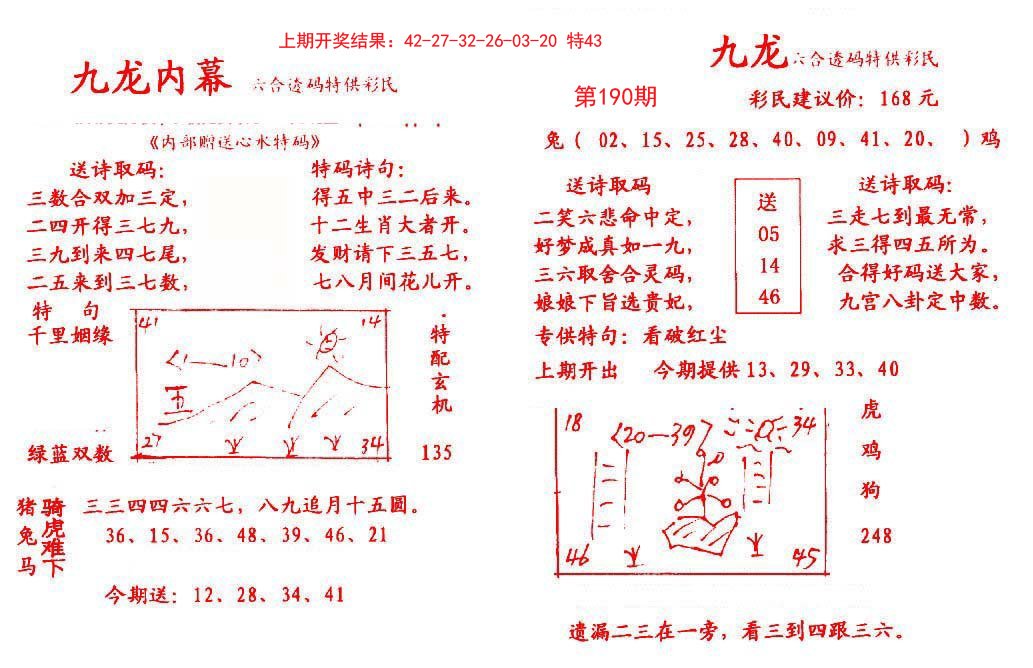 上期开奖结果：42-27-32-26-03-20 特43
九龙内幕 六合透码特供彩民
《内部赠送心水特码》
送诗取码：
三数合双加三定，
二四开得三七九，
三九到来四七尾，
二五来到三七数，
特码诗句：
得五中三二后来。
十二生肖大者开。
发财请下三五七，
七八月间花儿开。
特 句
千里姻缘
绿蓝双数
41
14
〈1—10〉
五
27
34
特配玄机
135
猪兔马
骑虎难下
三三四四六六七，八九追月十五圆。
36、15、36、48、39、46、21
今期送：12、28、34、41
九龙 六合透码特供彩民
第190期
彩民建议价：168元
兔（ 02、15、25、28、40、09、41、20、 ）鸡
送诗取码
二笑六悲命中定，
好梦成真如一九，
三六取舍合灵码，
娘娘下旨选贵妃，
送
05
14
46
送诗取码：
三走七到最无常，
求三得四五所为。
合得好码送大家，
九宫八卦定中数。
专供特句：看破红尘
上期开出 今期提供13、29、33、40
18
〈20—39〉
34
46
45
虎
鸡
狗
248
遗漏二三在一旁，看三到四跟三六。